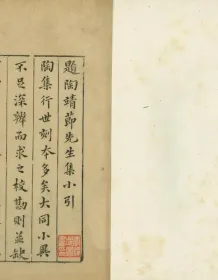 題陶靖節先生集小引
陶集行世刻本多矣大同小異
不足深辨而求之校勘則益缺